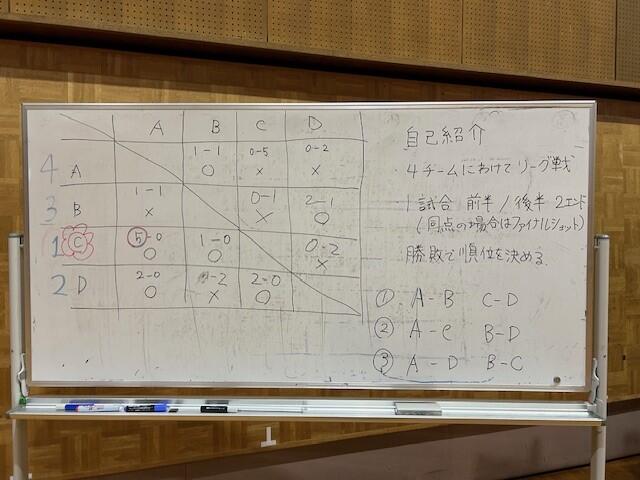 A B C D
4 A 1-1 ○ 0-5 × 0-2 ×
3 B 1-1 × 0-1 × 2-1 ○
1 C 5-0 ○ 1-0 ○ 0-2 ×
2 D 2-0 ○ -2 × 2-0 ○
自己紹介
4チームにわけてリーグ戦
1試合 前半/後半 2エンド
(同点の場合はファイナルショット)
勝敗で順位を決める
① A-B C-D
② A-C B-D
③ A-D B-C